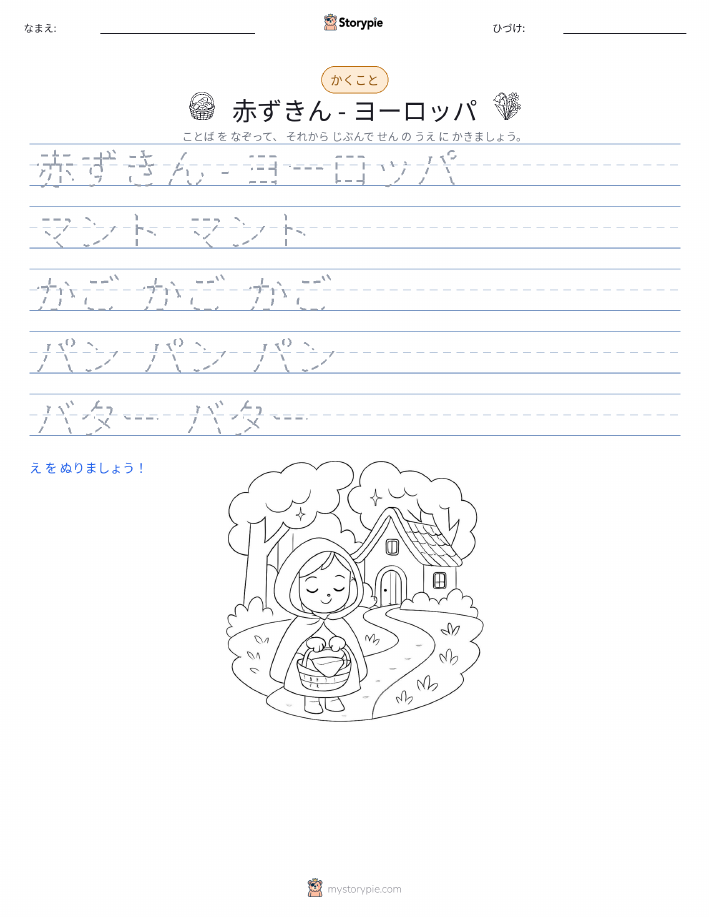 なまえ:
Storypie
ひづけ:
かくこと
赤ずきん - ヨーロッパ
ことば を なぞって、 それから じぶんで せん の うえ に かきましょう。
赤ずきん - ヨーロッパ
マント マント
かご かご かご
パン パン パン
バター バター
え を ぬりましょう！
mystorypie.com